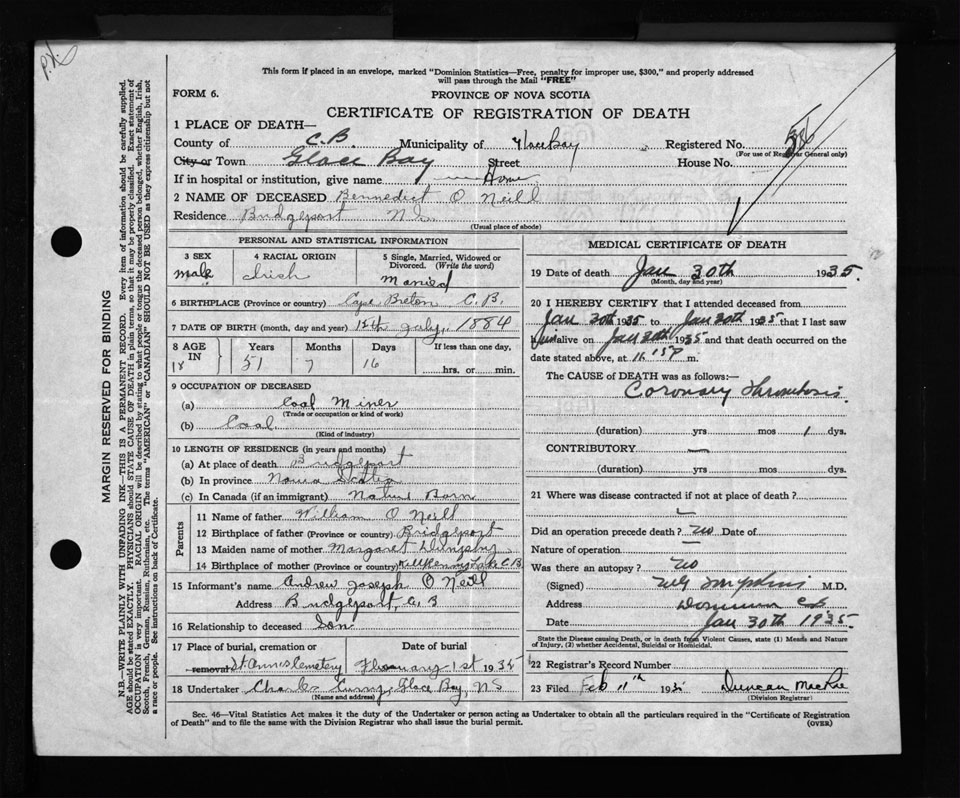 P.X.
This form if placed in an envelope, marked "Dominion Statistics—Free, penalty for improper use, $300," and properly addressed
will pass through the Mail "FREE"
FORM 6.
PROVINCE OF NOVA SCOTIA
CERTIFICATE OF REGISTRATION OF DEATH
1 PLACE OF DEATH—
County of C.B. Municipality of Glace Bay Registered No.
(For use of Registrar General only)
City or Town Glace Bay Street House No.
If in hospital or institution, give name Home
2 NAME OF DECEASED Bennedict O Neill
Residence Bridgeport N.S.
(Usual place of abode)
PERSONAL AND STATISTICAL INFORMATION
3 SEX 4 RACIAL ORIGIN 5 Single, Married, Widowed or
Divorced. (Write the word)
Male Irish Married
6 BIRTHPLACE (Province or country) Cape Breton C.B.
7 DATE OF BIRTH (month, day and year) 15th July, 1884
8 AGE IN Years Months Days If less than one day,
18 51 7 16 hrs. or min.
9 OCCUPATION OF DECEASED
(a) Coal Miner
(Trade or occupation or kind of work)
(b) Coal
(Kind of industry)
10 LENGTH OF RESIDENCE (in years and months)
(a) At place of death Bridgeport
(b) In province Nova Scotia
(c) In Canada (if an immigrant) Native Born
Parents
11 Name of father William O Neill
12 Birthplace of father (Province or country) Bridgeport
13 Maiden name of mother Margaret Dumpsey
14 Birthplace of mother (Province or country) Kilkenny Lake C.B.
15 Informant's name Andrew Joseph O Neill
Address Bridgeport, C.B
16 Relationship to deceased Son
17 Place of burial, cremation or removal Date of burial
St Annes Cemetery February 1st 1935
18 Undertaker Charles Curry, Glace Bay, NS
(Name and address)
MEDICAL CERTIFICATE OF DEATH
19 Date of death Jan 30th 1935.
(Month, day and year)
20 I HEREBY CERTIFY that I attended deceased from
Jan 30th 1935 to Jan 30th 1935 that I last saw
him alive on Jan 30th 1935 and that death occurred on the
date stated above, at m.
The CAUSE of DEATH was as follows:—
Coronary Thrombosis.
(duration) yrs mos 1 dys.
CONTRIBUTORY —
(duration) yrs mos dys.
21 Where was disease contracted if not at place of death?
—
Did an operation precede death? No Date of
Nature of operation —
Was there an autopsy? No
(Signed) M.D.
Address Dominion C.B.
Date Jan 30th 1935.
State the Disease causing Death, or in death from Violent Causes, state (1) Means and Nature
of Injury, (2) whether Accidental, Suicidal or Homicidal.
22 Registrar's Record Number
23 Filed Feb 11th 193 Duncan
(Division Registrar)
Sec. 46—Vital Statistics Act makes it the duty of the Undertaker or person acting as Undertaker to obtain all the particulars required in the "Certificate of Registration
of Death" and to file the same with the Division Registrar who shall issue the burial permit.
(OVER)
MARGIN RESERVED FOR BINDING
N.B.—WRITE PLAINLY WITH UNFADING INK—THIS IS A PERMANENT RECORD. Every item of information should be carefully supplied.
AGE should be stated EXACTLY. PHYSICIANS should STATE CAUSE OF DEATH in plain terms, so that it may be properly classified. Exact statement of
OCCUPATION is very important. RACIAL ORIGIN will be described by stating to what people or tongue the deceased person belonged, whether English, Irish,
Scotch, French, German, Russian, Ruthenian, etc. The terms "AMERICAN" or "CANADIAN" SHOULD NOT BE USED as they express citizenship but not
a race or people. See instructions on back of Certificate.